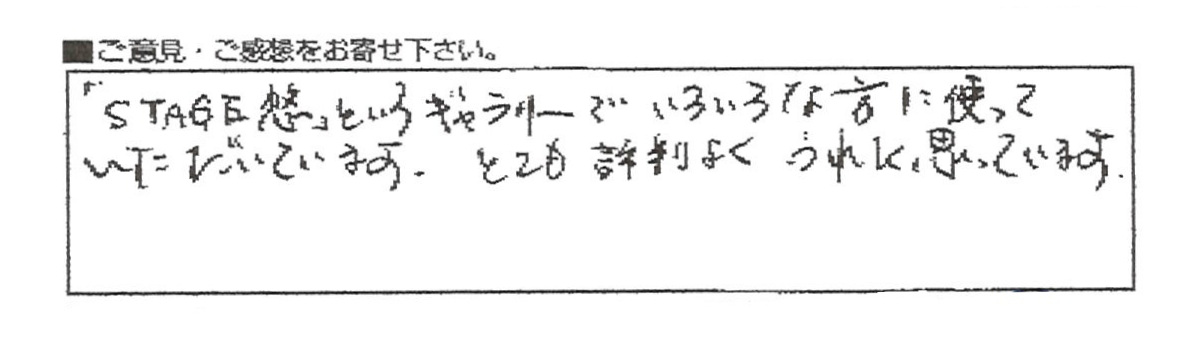 ■ご意見・ご感想をお寄せ下さい。
「STAGE悠」というギャラリーでいろいろな方に使って
いただいています. とても評判よく うれしく思っています.